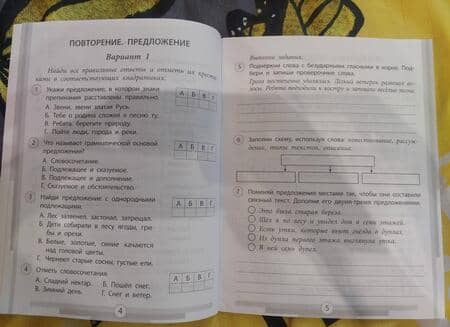 ПОВТОРЕНИЕ. ПРЕДЛОЖЕНИЕ
Вариант 1
Найди все правильные ответы и отметь их крести-
ками в соответствующих квадратиках.
1 Укажи предложение, в котором знаки
препинания расставлены правильно.
А Б В Г
А. Звени, звени златая Русь.
Б. Тебе о родина сложил я песню ту.
В. Ребята, берегите природу.
Г. Пойте люди, города и реки.
2 Что называют грамматической основой
предложения?
А Б В Г
А. Словосочетание.
Б. Подлежащее и сказуемое.
В. Подлежащее и дополнение.
Г. Сказуемое и обстоятельство.
3 Найди предложение с однородными
подлежащими.
А Б В Г
А. Лес зазвенел, застонал, затрещал.
Б. Дети собирали в лесу ягоды, гри-
бы и орехи.
В. Белые, золотые, синие качаются
над головой цветы.
Г. Чернеют старые сосны, густые ели.
4 Отметь словосочетания.
А Б В Г
А. Сладкий нектар. Б. Пошёл снег.
В. Зимний день. Г. Снег и ветер.
4
Выполни задания.
5 Подчеркни слова с безударными гласными в корне. Под-
бери и запиши проверочные слова.
6 Заполни схему, используя слова: повествование, рассуж-
дение, типы текстов, описание.
7 Поменяй предложения местами так, чтобы они составили
связный текст. Дополни его двумя-тремя предложениями.
Это была старая берёза.
Шёл я по лесу и увидел дом в семь этажей.
Есть утки, которые вьют гнёзда в дуплах.
Из дупла первого этажа выглянула утка.
В ней семь дупел.
5